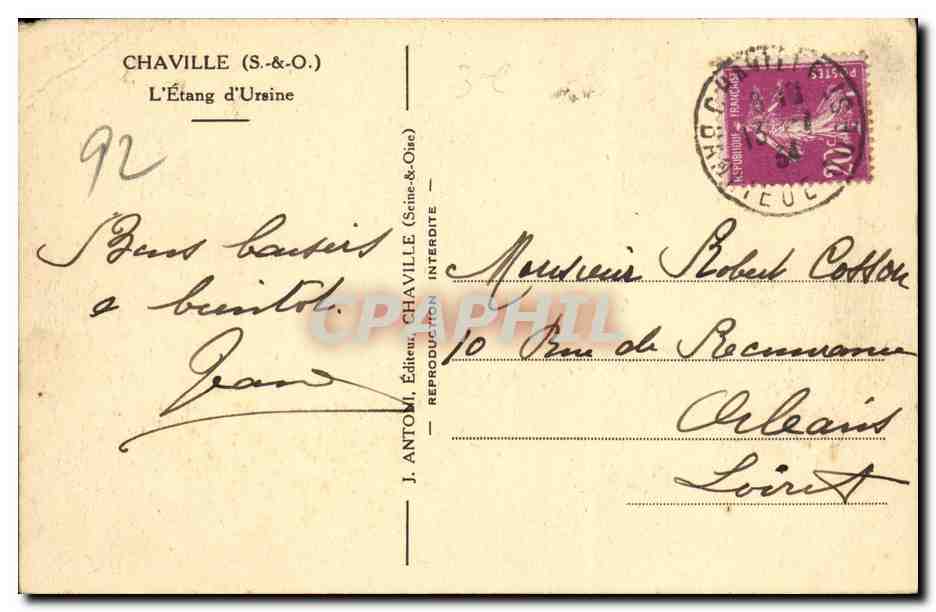 CHAVILLE (S.-&-O.)
L'Étang d'Ursine
92
Bons baisers
a bientot.
Jean
J. ANTONI, Éditeur, CHAVILLE (Seine-&-Oise)
— REPRODUCTION INTERDITE —
CPAPHIL
3€
CHAVILLE
13 - 1
34
POSTES
REPUBLIQUE FRANÇAISE
20c
Monsieur Robert Cosson
10 Rue de Recouvrance
Orleans
Loiret